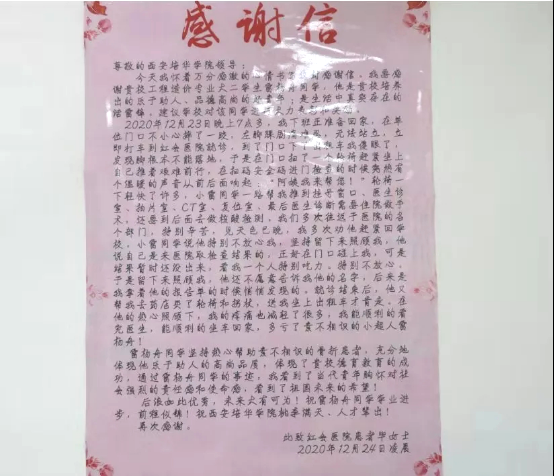 感谢信
尊敬的西安培华学院领导：
今天我怀着万分感激的心情书了这封感谢信，我要感
谢贵校工程造价专业大二学生雷杨舟同学，他是贵校培养
出的乐于助人、品德高尚的好青年；是生活中真实存在的
活雷锋，建议学校对该同学
2020年12月23日晚上7点多，我下班正准备回家，在单
位门口不小心摔了一跤，左脚踝剧痛难忍，无法站立，立
即打车到红会医院就诊，到了门口下了出租车我傻眼了，
发现脚根本不能落地，于是在门口扫了一个轮椅赶紧坐上
自己推着艰难前行，在扫码安全码进门检查的时候突然有
个温暖的声音从前后面响起：“阿姨我来帮您！”轮椅一
下轻快了许多，小雷同学一路帮我推到挂号窗口、医生诊
室、拍片室、CT室、复位室，最后医生诊断需要住院做手
术，还要到后面去做核酸检测，我们多次往返于医院的各
个部门，特别辛苦，见天色已晚，我多次劝他赶紧回学
校，小雷同学说他特别不放心我，坚持留下来照顾我，他
说自己是来医院取检查结果的，正好在门口碰上我，可是
结果暂时还没出来，看我一个人特别吃力，特别不放心，
于是留下来照顾我，他还不愿意告诉我他的名字，后来是
我拿着他的报告单的时候悄悄发现的，就诊结束后，他又
帮我去药店买了轮椅和拐杖，送我坐上出租车才肯走，在
他的热心照顾下，我的疼痛也减轻了很多，我能顺利的看
完医生，能顺利的坐车回家，多亏了素不相识的小超人雷
杨舟！
雷杨舟同学坚持热心帮助素不相识的骨折患者，充分地
体现了他乐于助人的高尚品质，体现了贵校德育教育的成
功，通过雷杨舟同学的事迹，我看到了当代青年胸怀对社
会强烈的责任感和使命感，看到了祖国未来的希望！
后浪如此优秀，未来大有可为！祝雷杨舟同学学业进
步，前程似锦！祝西安培华学院桃李满天、人才辈出！
再次感谢。
此致红会医院患者华女士
2020年12月24日凌晨